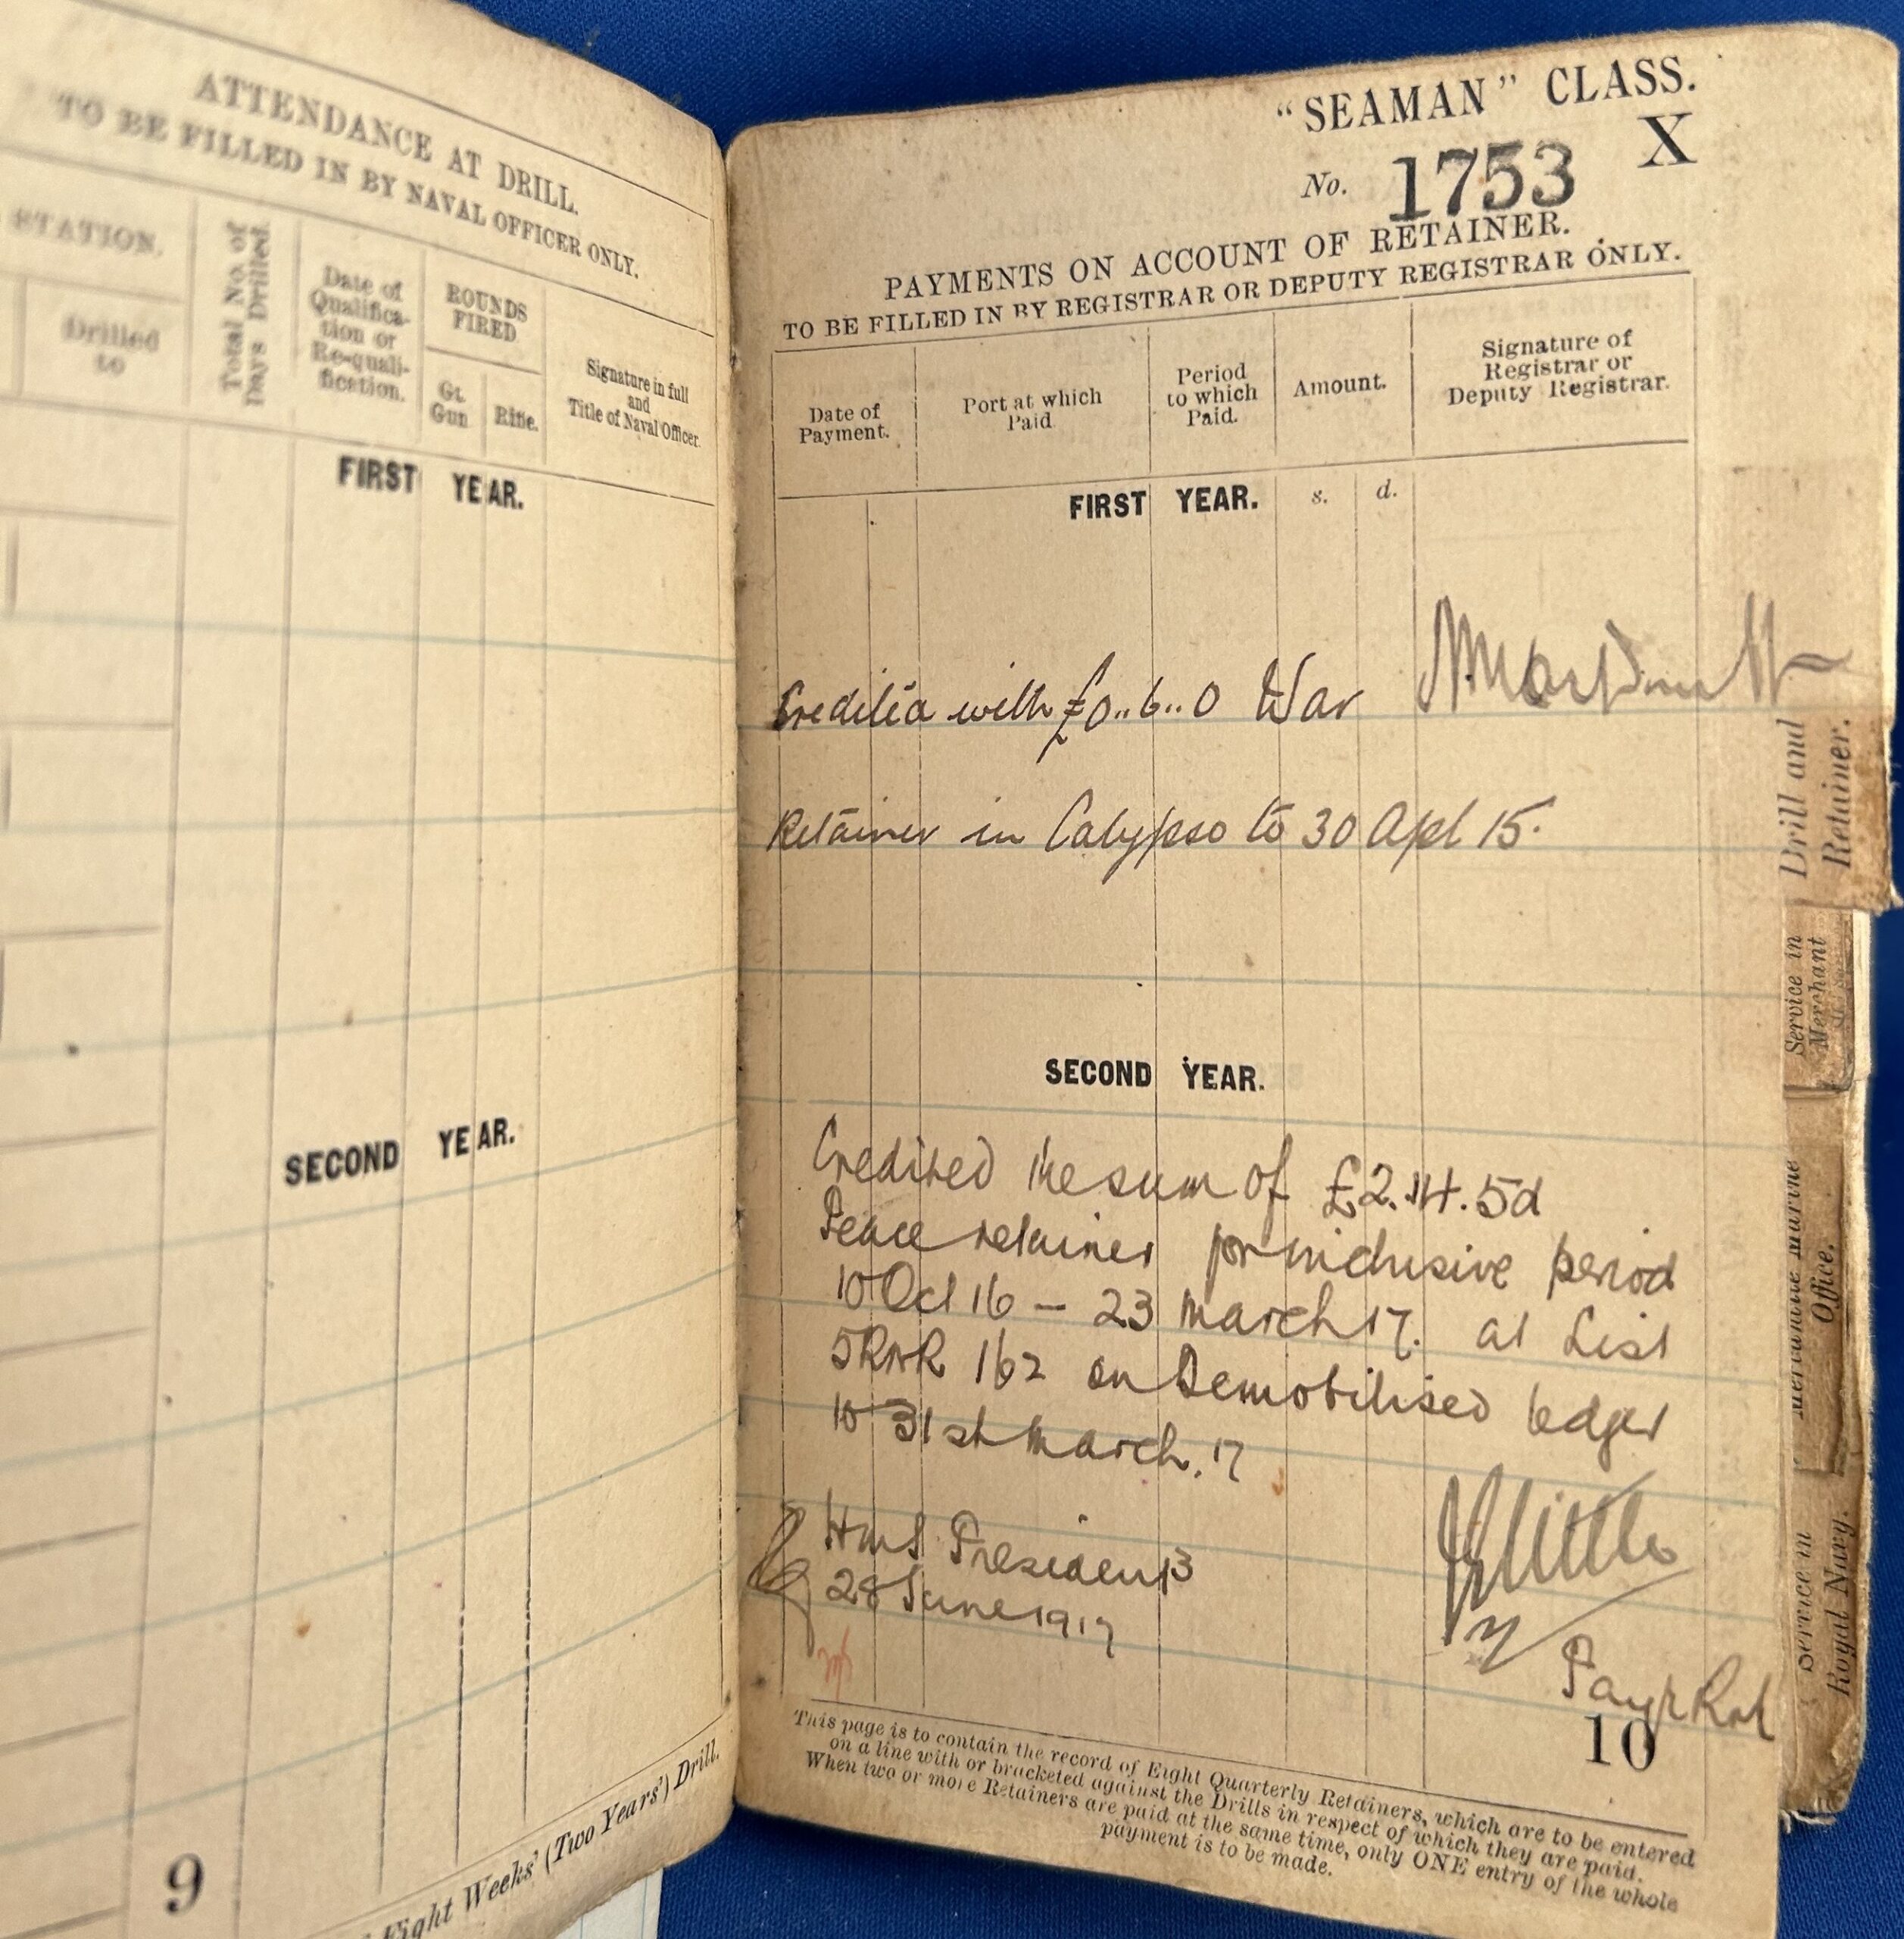 ATTENDANCE AT DRILL.
TO BE FILLED IN BY NAVAL OFFICER ONLY.
STATION.
Drilled to
Total No. of Days Drilled.
Date of Qualifica- tion or Re-quali- fication.
ROUNDS FIRED
Gt. Gun
Rifle.
Signature in full and Title of Naval Officer.
FIRST YEAR.
SECOND YEAR.
Eight Weeks' (Two Years') Drill.
9
"SEAMAN" CLASS.
No. 1753 X
PAYMENTS ON ACCOUNT OF RETAINER.
TO BE FILLED IN BY REGISTRAR OR DEPUTY REGISTRAR ONLY.
Date of Payment.
Port at which Paid
Period to which Paid.
Amount.
Signature of Registrar or Deputy Registrar.
FIRST YEAR.
s. d.
Credited with £0..6..0 War
Retainer in Calypso to 30 Apl 15.
SECOND YEAR.
Credited the sum of £2.14.5d
Peace retainer for inclusive period
10 Oct 16 – 23 March 17. at List
5RNR 162 on Demobilised ledger
to 31st March. 17
HMS President
28 June 1917
10
This page is to contain the record of Eight Quarterly Retainers, which are to be entered
on a line with or bracketed against the Drills in respect of which they are paid.
When two or more Retainers are paid at the same time, only ONE entry of the whole
payment is to be made.
Drill and
Retainer.
Service in
Merchant
Mercantile Marine
Office.
Service in
Royal Navy.